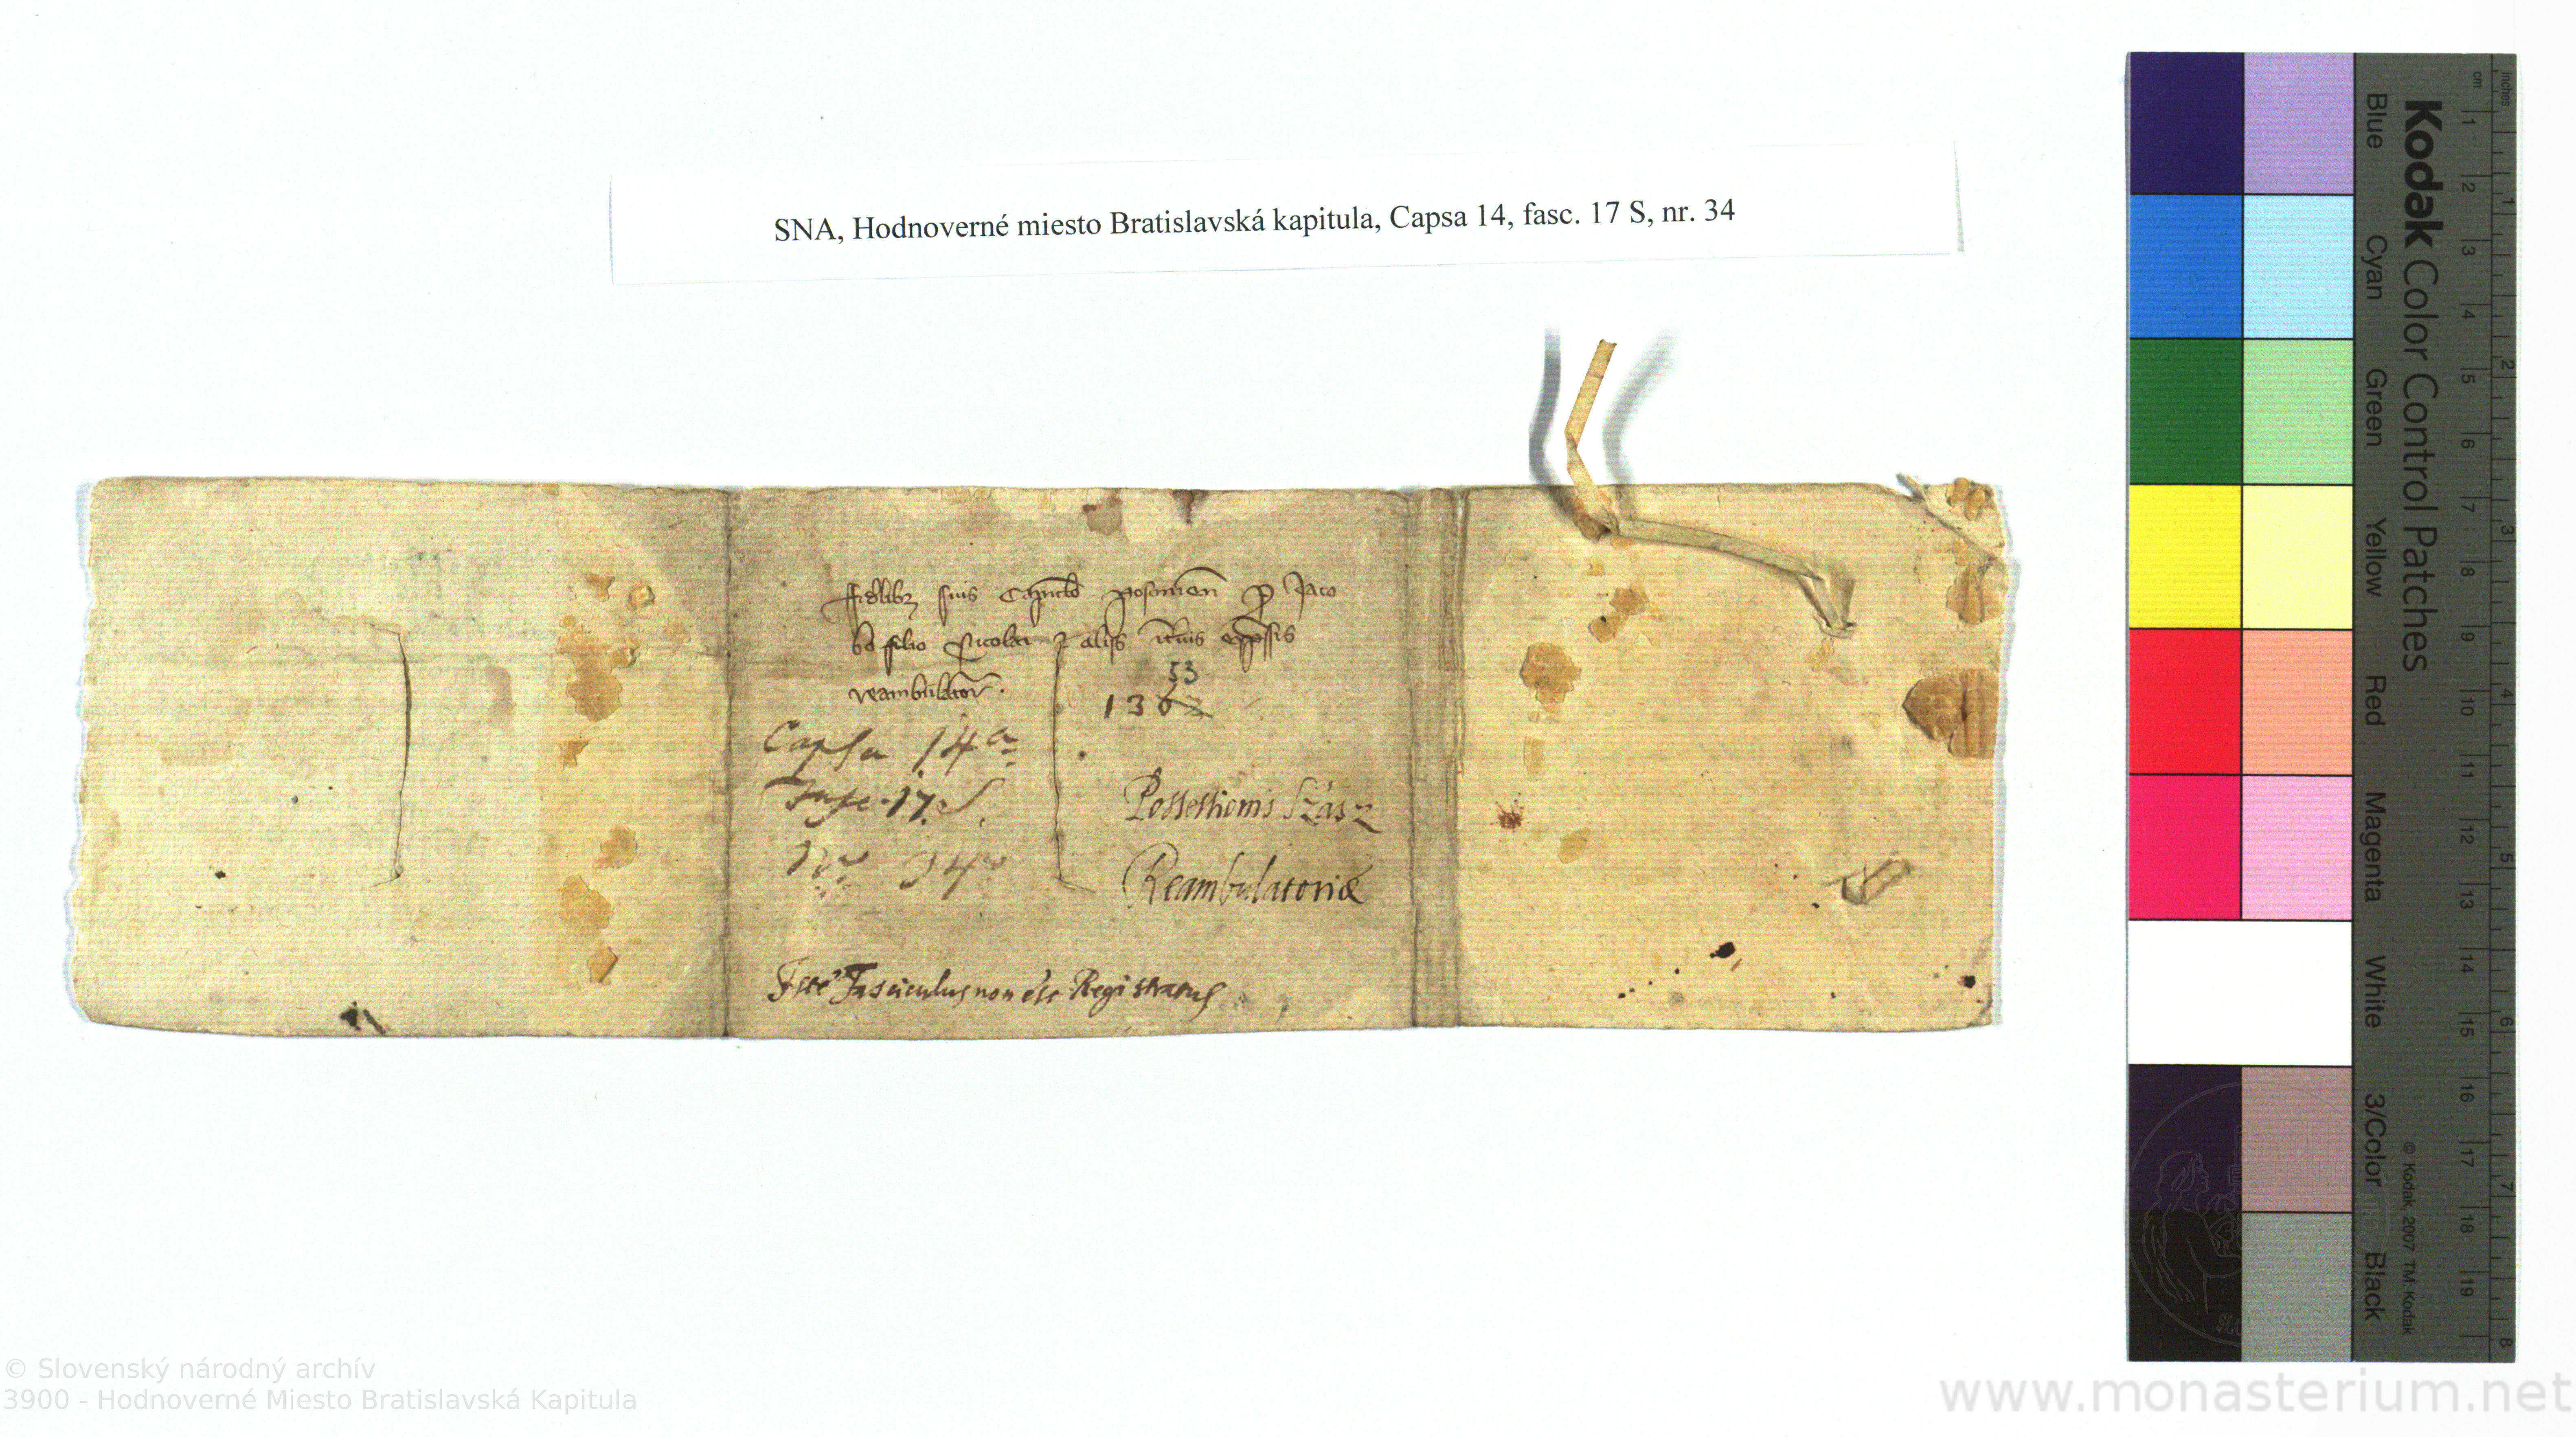 SNA, Hodnoverné miesto Bratislavská kapitula, Capsa 14, fasc. 17 S, nr. 34
ffidelibz suis Capitulo posonien p Jaco
bo filio Nicolai et alijs intus expssis
reambulator.
53
1363
Capsa 14a
Fasc. 17. S.
Nro 34o
Possessionis Szász
Reambulatoriæ
Iste Fasciculus non est Registratus
Kodak Color Control Patches
Blue Cyan Green Yellow Red Magenta White 3/Color Black
© Kodak, 2007 TM: Kodak
inches 1 2 3 4 5 6 7 8
cm 1 2 3 4 5 6 7 8 9 10 11 12 13 14 15 16 17 18 19
© Slovenský národný archív
3900 - Hodnoverné Miesto Bratislavská Kapitula
www.monasterium.net